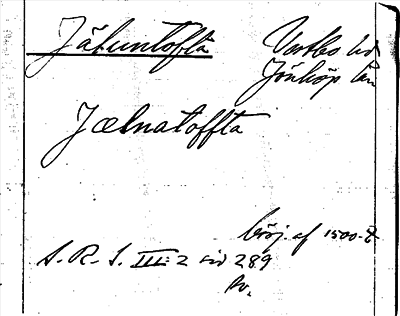 Jäluntofta Vartbo hd
Jönköp län
Jælnatoffta
börj. af 1500-t
S. R. S. III: 2 sid 289